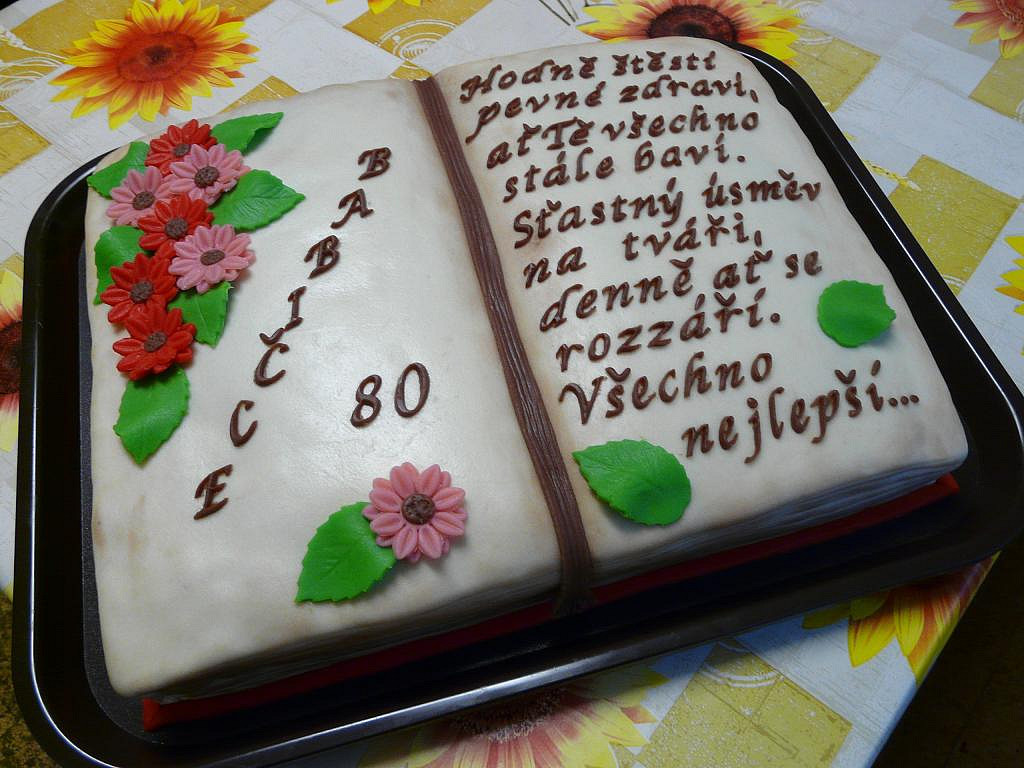 BABIČCE
80
Hodně štěstí
pevné zdraví,
ať Tě všechno
stále baví.
Šťastný úsměv
na tváři,
denně ať se
rozzáří.
Všechno
nejlepší...